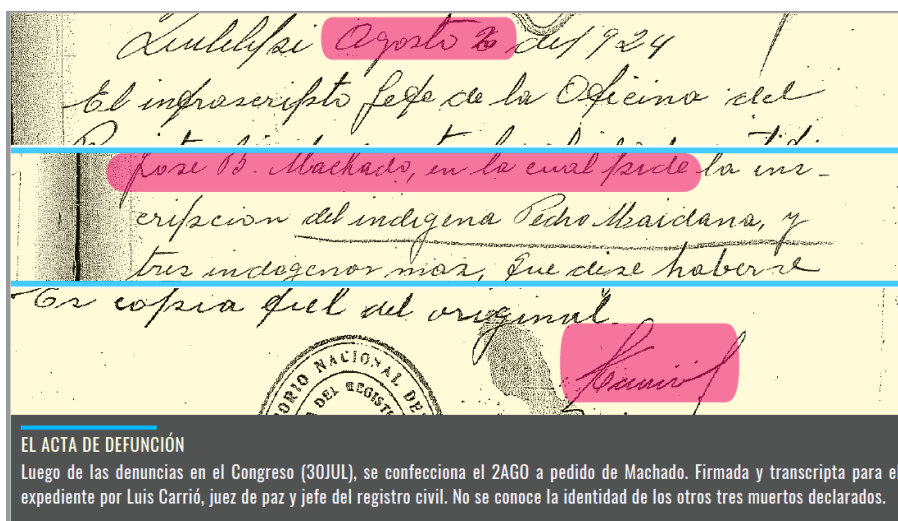 Quitilipi Agosto 2 de 1924
El infrascripto Jefe de la Oficina del
Jose B. Machado, en la cual pide la ins-
cripscion del indigena Pedro Maidana, y
tres indagenas mas, que dise haberse
Es copia fiel del original.
ORIO NACIONAL DE
DEL REGIST
EL ACTA DE DEFUNCIÓN
Luego de las denuncias en el Congreso (30JUL), se confecciona el 2AGO a pedido de Machado. Firmada y transcripta para el
expediente por Luis Carrió, juez de paz y jefe del registro civil. No se conoce la identidad de los otros tres muertos declarados.